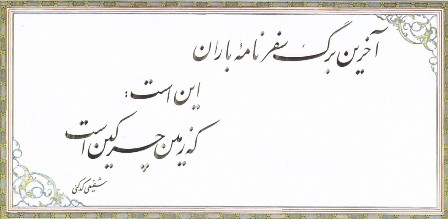 آخرین برگ سفرنامهٔ باران
این است:
که زمین چرکین است
شفیعی کدکنی